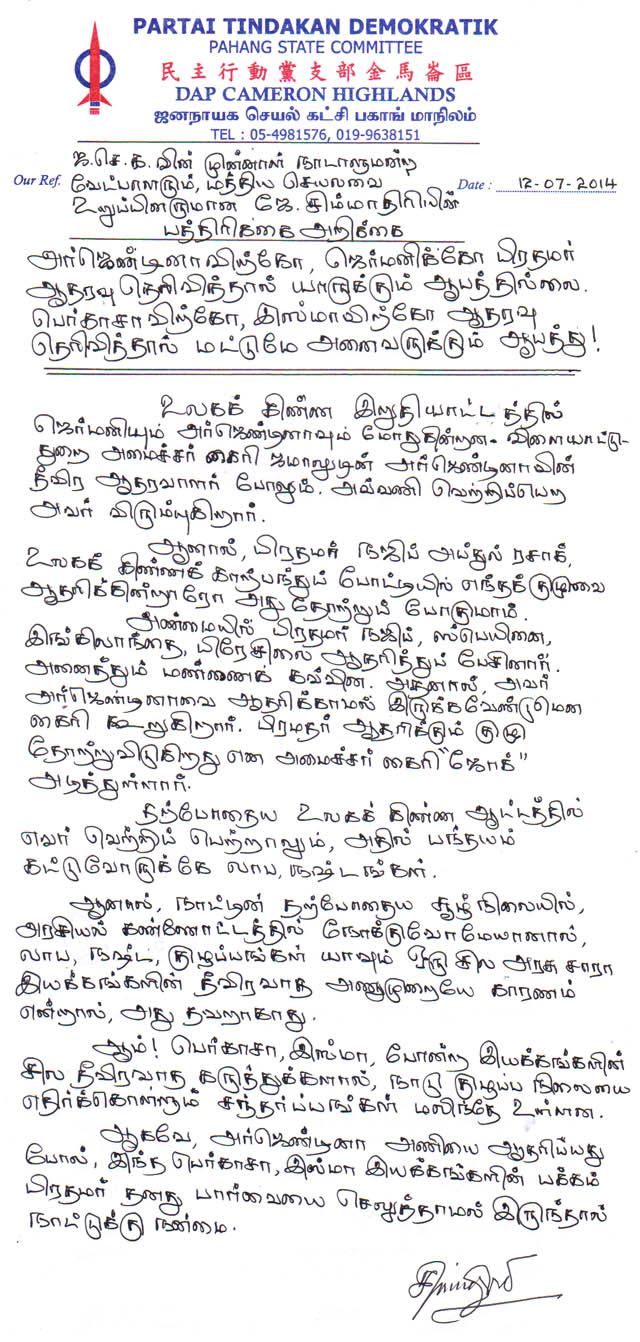 PARTAI TINDAKAN DEMOKRATIK
PAHANG STATE COMMITTEE
民主行動黨支部金馬崙區
DAP CAMERON HIGHLANDS
ஜனநாயக செயல் கட்சி பகாங் மாநிலம்
TEL : 05-4981576, 019-9638151
ஜ.செ.க.வின் முன்னாள் நாடாளுமன்ற
Our Ref. வேட்பாளரும், மத்திய செயலவை Date : 12-07-2014
உறுப்பினருமான ஜே.சிம்மாதிரியின்
பத்திரிக்கை அறிக்கை
அர்ஜெண்டினாவிற்கோ, ஜெர்மனிக்கோ பிரதமர்
ஆதரவு தெரிவித்தால் யாருக்கும் ஆபத்தில்லை.
பெர்காசாவிற்கோ, இஸ்மாவிற்கோ ஆதரவு
தெரிவித்தால் மட்டுமே அனைவருக்கும் ஆபத்து!
உலகக் கிண்ண இறுதியாட்டத்தில்
ஜெர்மனியும் அர்ஜெண்டினாவும் மோதுகின்றன. விளையாட்டு-
துறை அமைச்சர் கைரி ஜமாலுடின் அர்ஜெண்டினாவின்
தீவிர ஆதரவாளர் போலும். அவ்வணி வெற்றிப்பெற
அவர் விரும்புகிறார்.
ஆனால், பிரதமர் நஜிப் அப்துல் ரசாக்,
உலகக் கிண்ணக் காற்பந்துப் போட்டியில் எந்தக் குழுவை
ஆதரிக்கின்றாரோ அது தோற்றுப் போகுமாம்.
அண்மையில் பிரதமர் நஜிப், ஸ்பெயினை,
இங்கிலாந்தை, பிரேசிலை ஆதரித்துப் பேசினார்.
அனைத்தும் மண்ணைக் கவ்வின. அதனால், அவர்
அர்ஜெண்டினாவை ஆதரிக்காமல் இருக்கவேண்டுமென
கைரி கூறுகிறார். பிரமதர் ஆதரிக்கும் குழு
தோற்றுவிடுகிறது என அமைச்சர் கைரி "ஜோக்"
அடித்துள்ளார்.
தற்போதைய உலகக் கிண்ண ஆட்டத்தில்
எவர் வெற்றிப் பெற்றாலும், அதில் பந்தயம்
கட்டுவோருக்கே லாப, நஷ்டங்கள்.
ஆனால், நாட்டின் தற்போதைய சூழ்நிலையில்,
அரசியல் கண்ணோட்டத்தில் நோக்குவோமேயானால்,
லாப, நஷ்ட, குழப்பங்கள் யாவும் ஒரு சில அரசு சாரா
இயக்கங்களின் தீவிரவாத அணுமுறையே காரணம்
என்றால், அது தவறாகாது.
ஆம்! பெர்காசா, இஸ்மா, போன்ற இயக்கங்களின்
சில தீவிரவாத கருத்துக்களால், நாடு குழப்ப நிலையை
எதிர்க்கொள்ளும் சந்தர்ப்பங்கள் மலிந்தே உள்ளன.
ஆகவே, அர்ஜெண்டினா அணியை ஆதரிப்பது
போல், இந்த பெர்காசா, இஸ்மா இயக்கங்களின் பக்கம்
பிரதமர் தனது பார்வையை செலுத்தாமல் இருந்தால்
நாட்டுக்கு நன்மை.